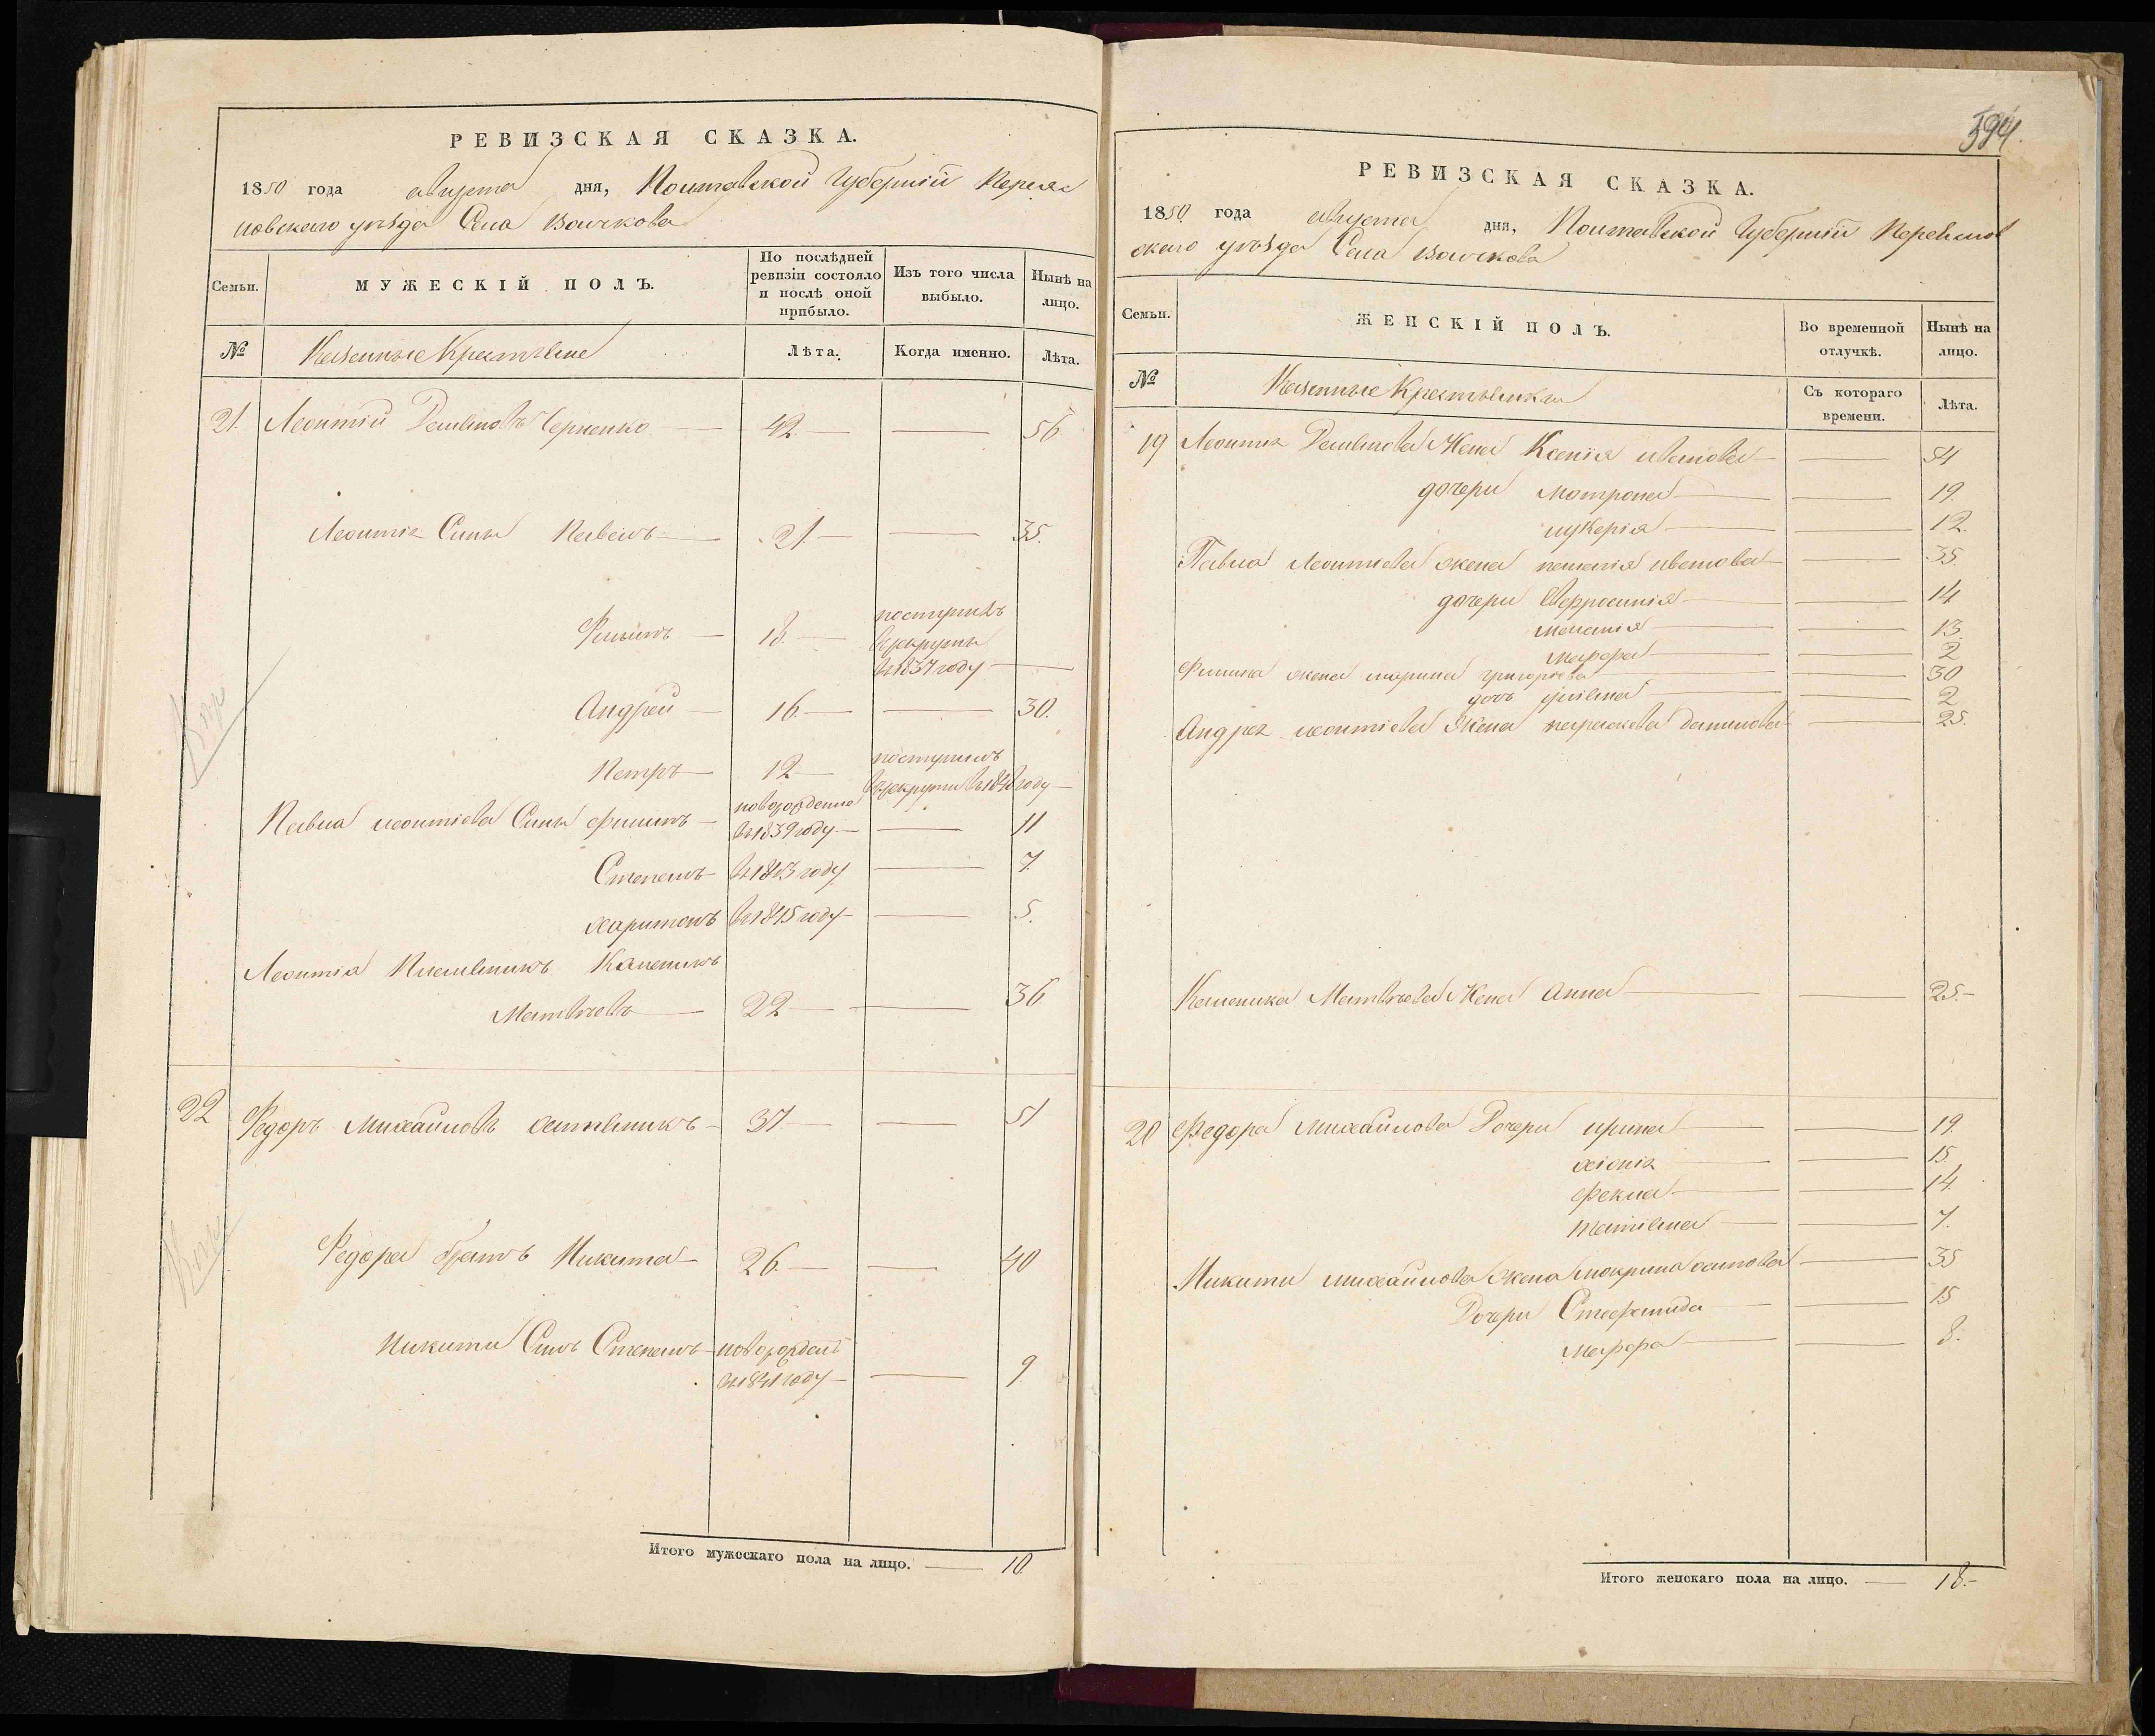 РЕВИЗСКАЯ СКАЗКА.
1850 года августа дня, Полтавской Губернии Переяс
ловского уезда Села
Семьи.
МУЖЕСКІЙ ПОЛЪ.
По послѣдней ревизіи состояло и послѣ оной прибыло.
Изъ того числа выбыло.
Нынѣ на лицо.
№ Казенные Крестьяне Лѣта. Когда именно. Лѣта.
21. Леонтий Черненко 42 56
Леонтія Сины Павелъ 21. 35.
Филипъ 18. поступилъ
в рекруты
в 1837 году
Андрей 16. 30.
Петръ 12 поступилъ
в рекруты в 1848 году
Павла леонтіева Сины филипъ новорожденно
в 1839 году 11
Степанъ в 1843 году 7.
харитонъ в 1845 году 5.
Леонтія Племянникъ
Матвѣевъ 22 36
22 Федоръ Михайловъ 37 51
Федора братъ Никита 26. 40
Никити Синъ Степанъ новорожденъ
в 1841 году 9
Итого мужескаго пола на лицо. 10.
594.
РЕВИЗСКАЯ СКАЗКА.
1850 года августа дня, Полтавской Губернии
ского уѣзда Села
Семьи.
ЖЕНСКІЙ ПОЛЪ.
Во временной отлучкѣ.
Нынѣ на лицо.
№ Казенные Крестьянки Съ котораго времени. Лѣта.
19 Леонтия Жена Ксенія иванова 54
дочери мотрона 19.
лукерія 12.
Павла Леонтиева жена иванова 35.
дочери Евфросинія 14
меланія 13.
марфа 2
Филипа жена марина григорьева 30
дочь 2
Андрея леонтіева Жена параскева Данилова 25.
Матвѣева Жена Анна 25.
20 Федора михайлова Дочери ирина 19.
хіонія 15
фекла 14
татіяна 7.
Никити михайлова жена мокрина осипова 35
Дочери Стефанида 15
марфа 8.
Итого женскаго пола на лицо. 18.